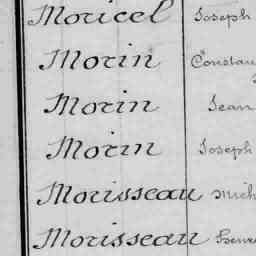 Moricel Joseph
Morin
Morin Jean
Morin Joseph
Morisseau
Morisseau